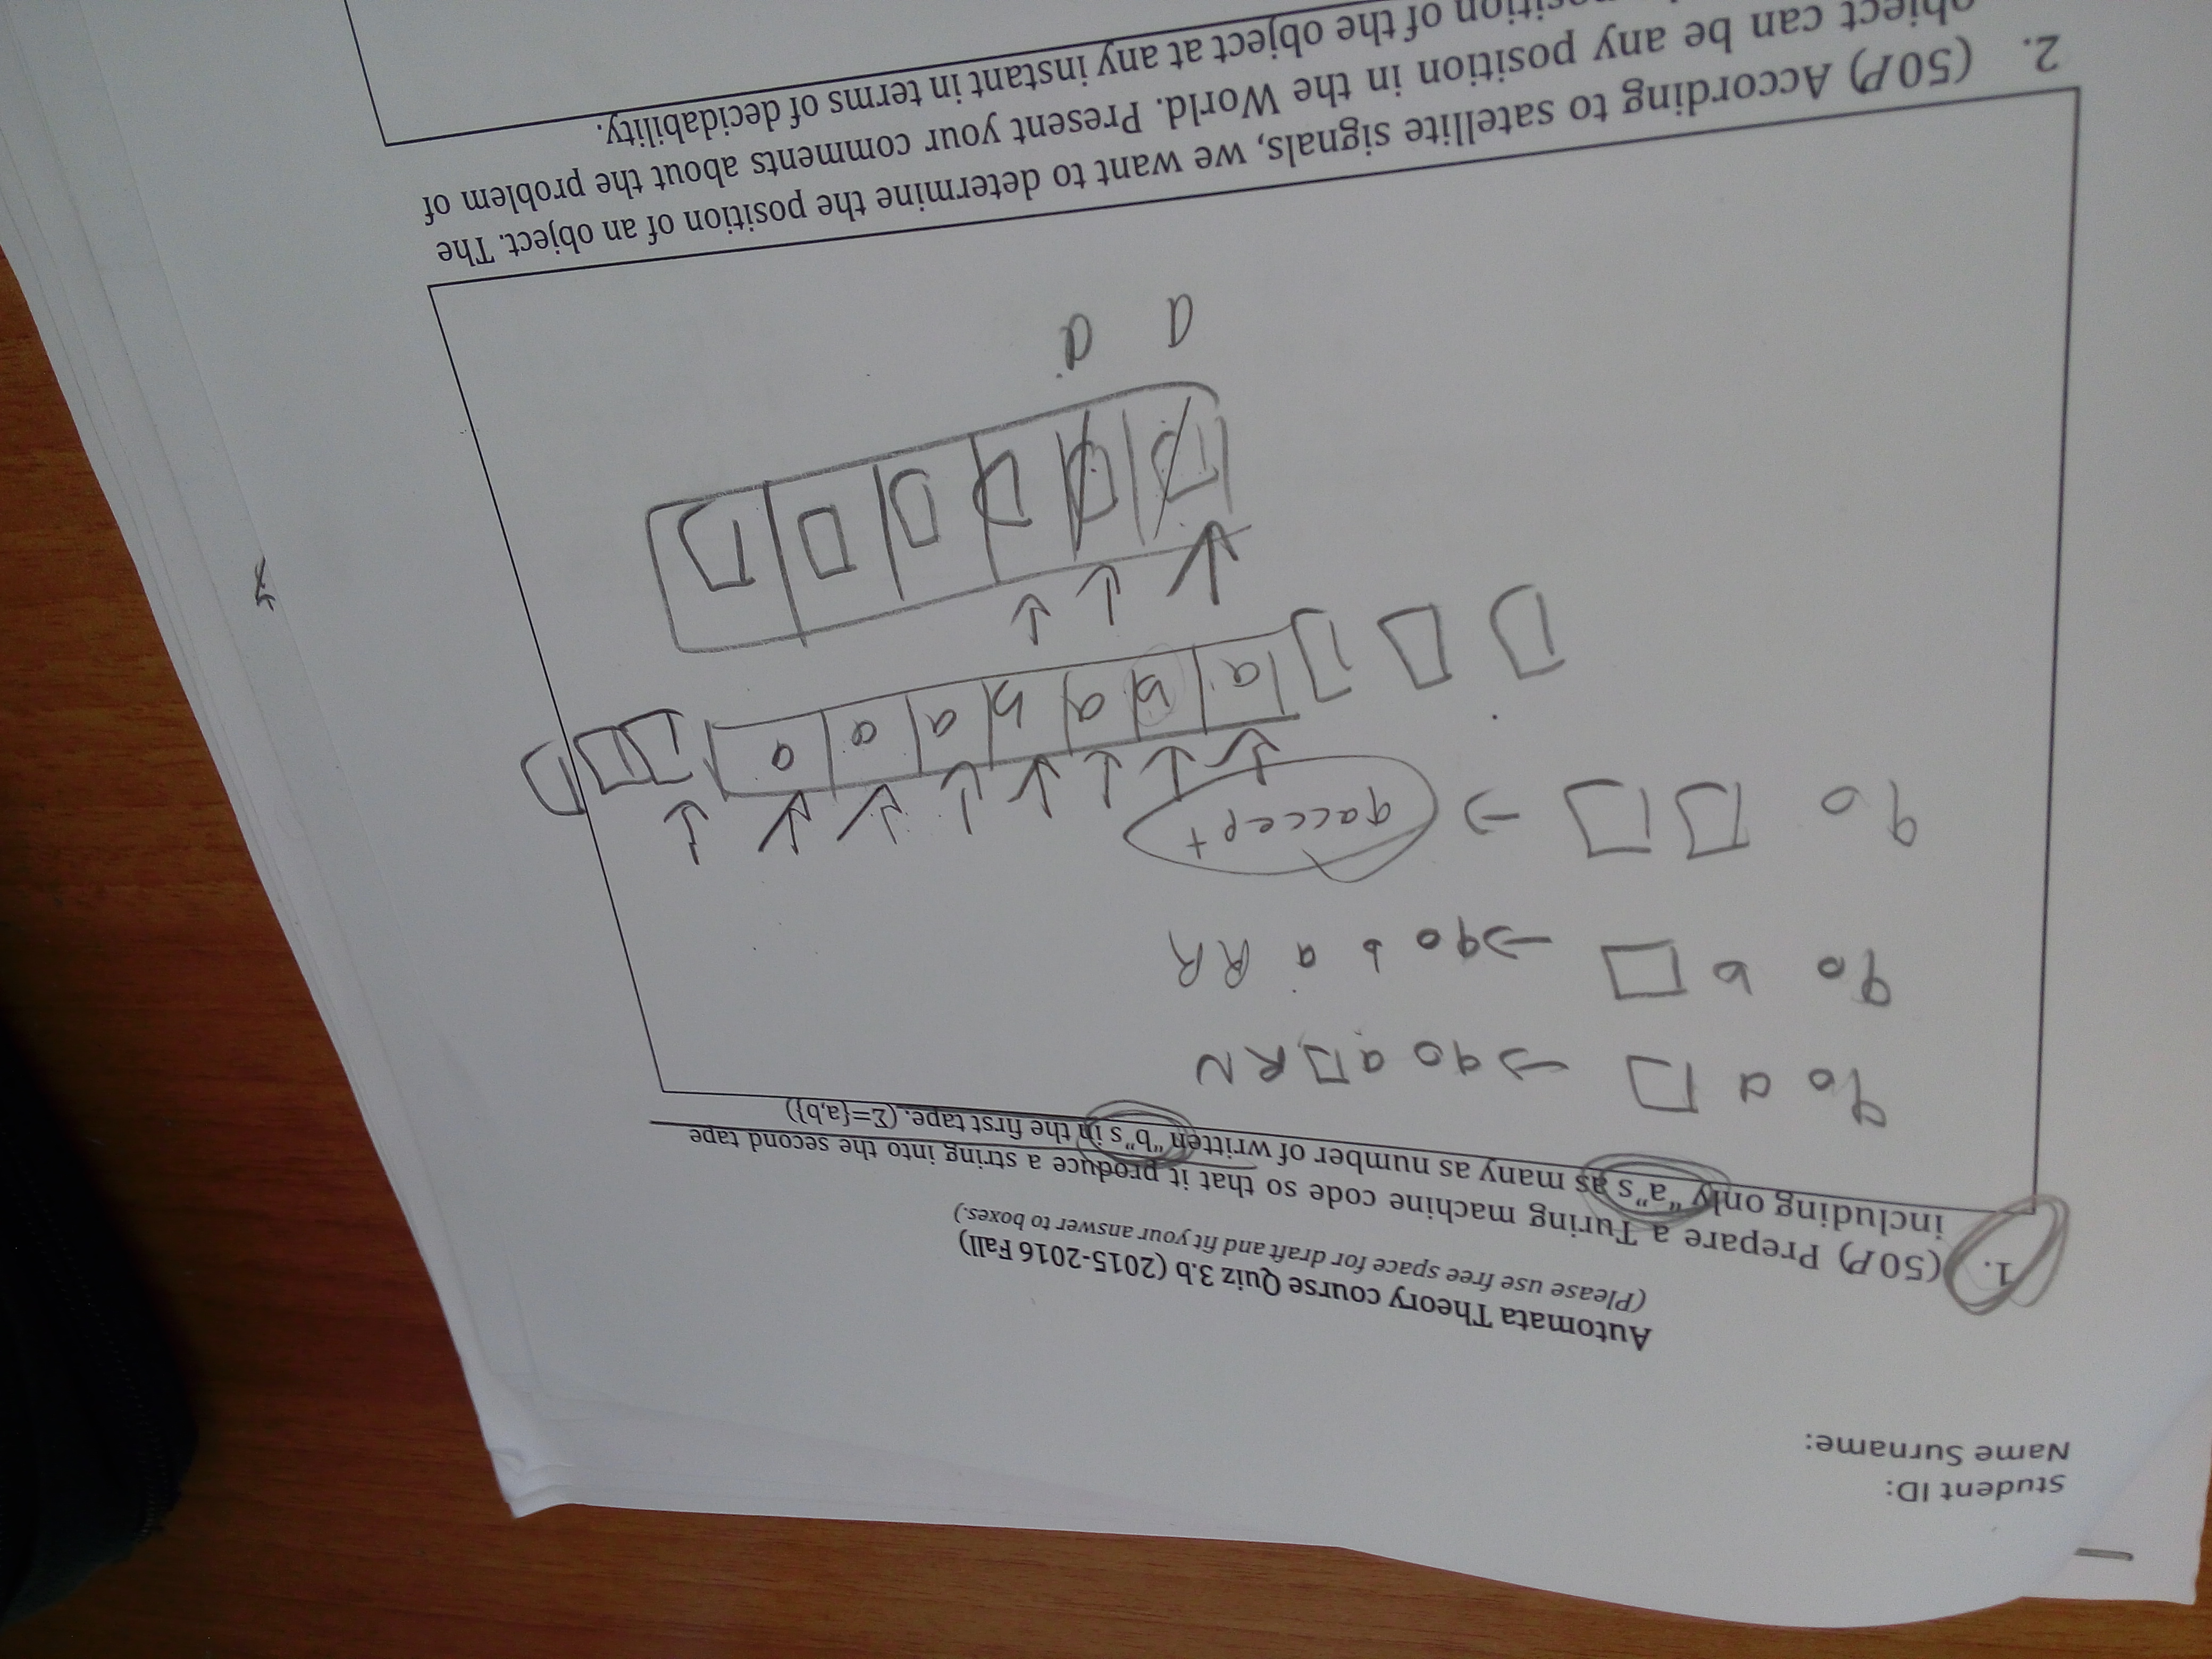 Student ID:
Name Surname:
Automata Theory course Quiz 3.b (2015-2016 Fall)
(Please use free space for draft and fit your answer to boxes.)
1. (50P) Prepare a Turing machine code so that it produce a string into the second tape
including only "a"s as many as number of written "b"s in the first tape. (Σ={a,b})
q0 a □ → q0 a □, R N
q0 b □ → q0 b a R R
q0 □ □ → qaccept
□ □ □ a b a b a a a □ □ □
□ □ □ □ □ □
a a
2. (50P) According to satellite signals, we want to determine the position of an object. The
object can be any position in the World. Present your comments about the problem of
position of the object at any instant in terms of decidability.